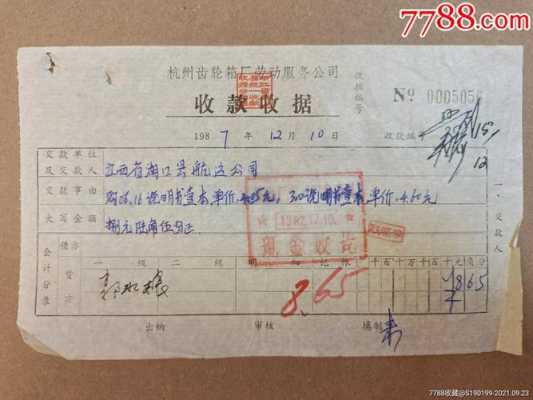 7788.com
杭州齿轮箱厂劳动服务公司
收款收据
收据编号
Nº 0005056
1987年12月10日
收款编
交款单位及交款人
江西省湖口县航运公司
交款事由
说明书壹本,单价4.05元, 300说明书壹本单价4.60元
大写金额
捌元陆角伍分正
1987.12.10
现金收讫
会计分录
借方
贷方
一级 二级 明细
千百十万千百十元角分
8.65
¥865
交款人
出纳
审核
填制
7788收藏@S190199-2021.09.23